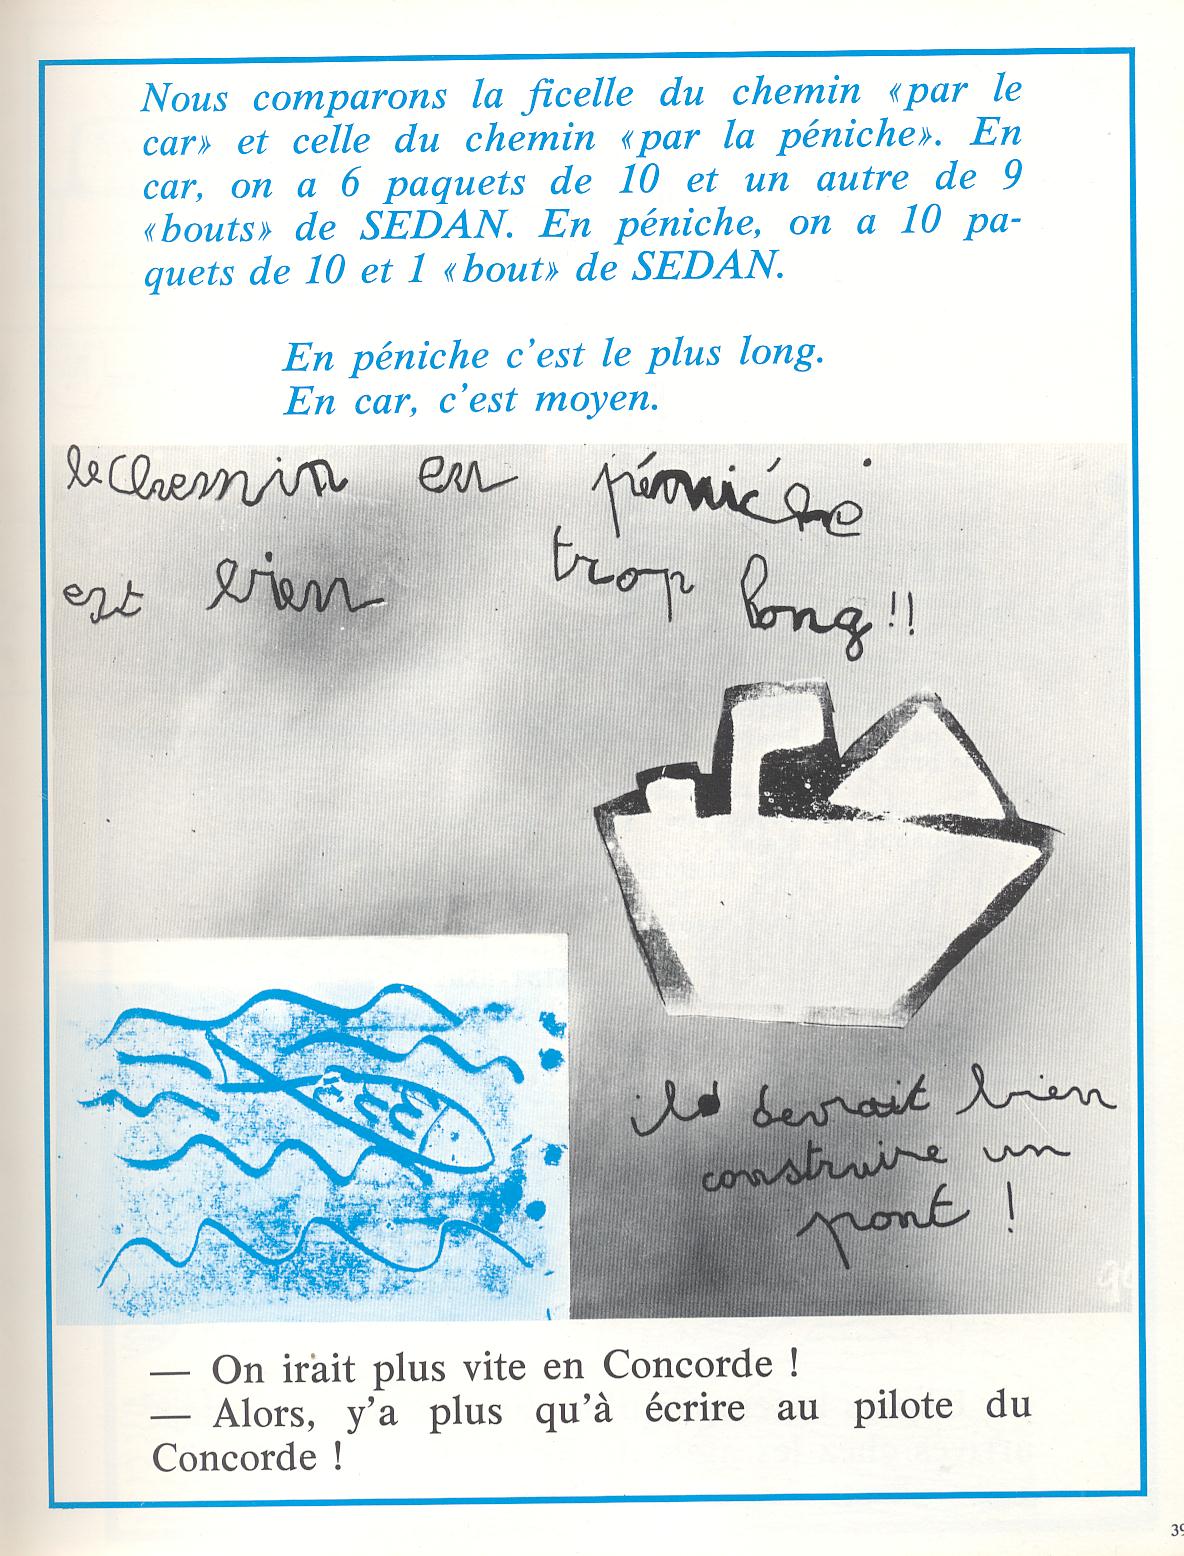 Nous comparons la ficelle du chemin «par le
car» et celle du chemin «par la péniche». En
car, on a 6 paquets de 10 et un autre de 9
«bouts» de SEDAN. En péniche, on a 10 pa-
quets de 10 et 1 «bout» de SEDAN.
En péniche c'est le plus long.
En car, c'est moyen.
le Chemin en péniche
est bien trop long!!
il devrait bien
construire un
pont !
— On irait plus vite en Concorde !
— Alors, y'a plus qu'à écrire au pilote du
Concorde !
39